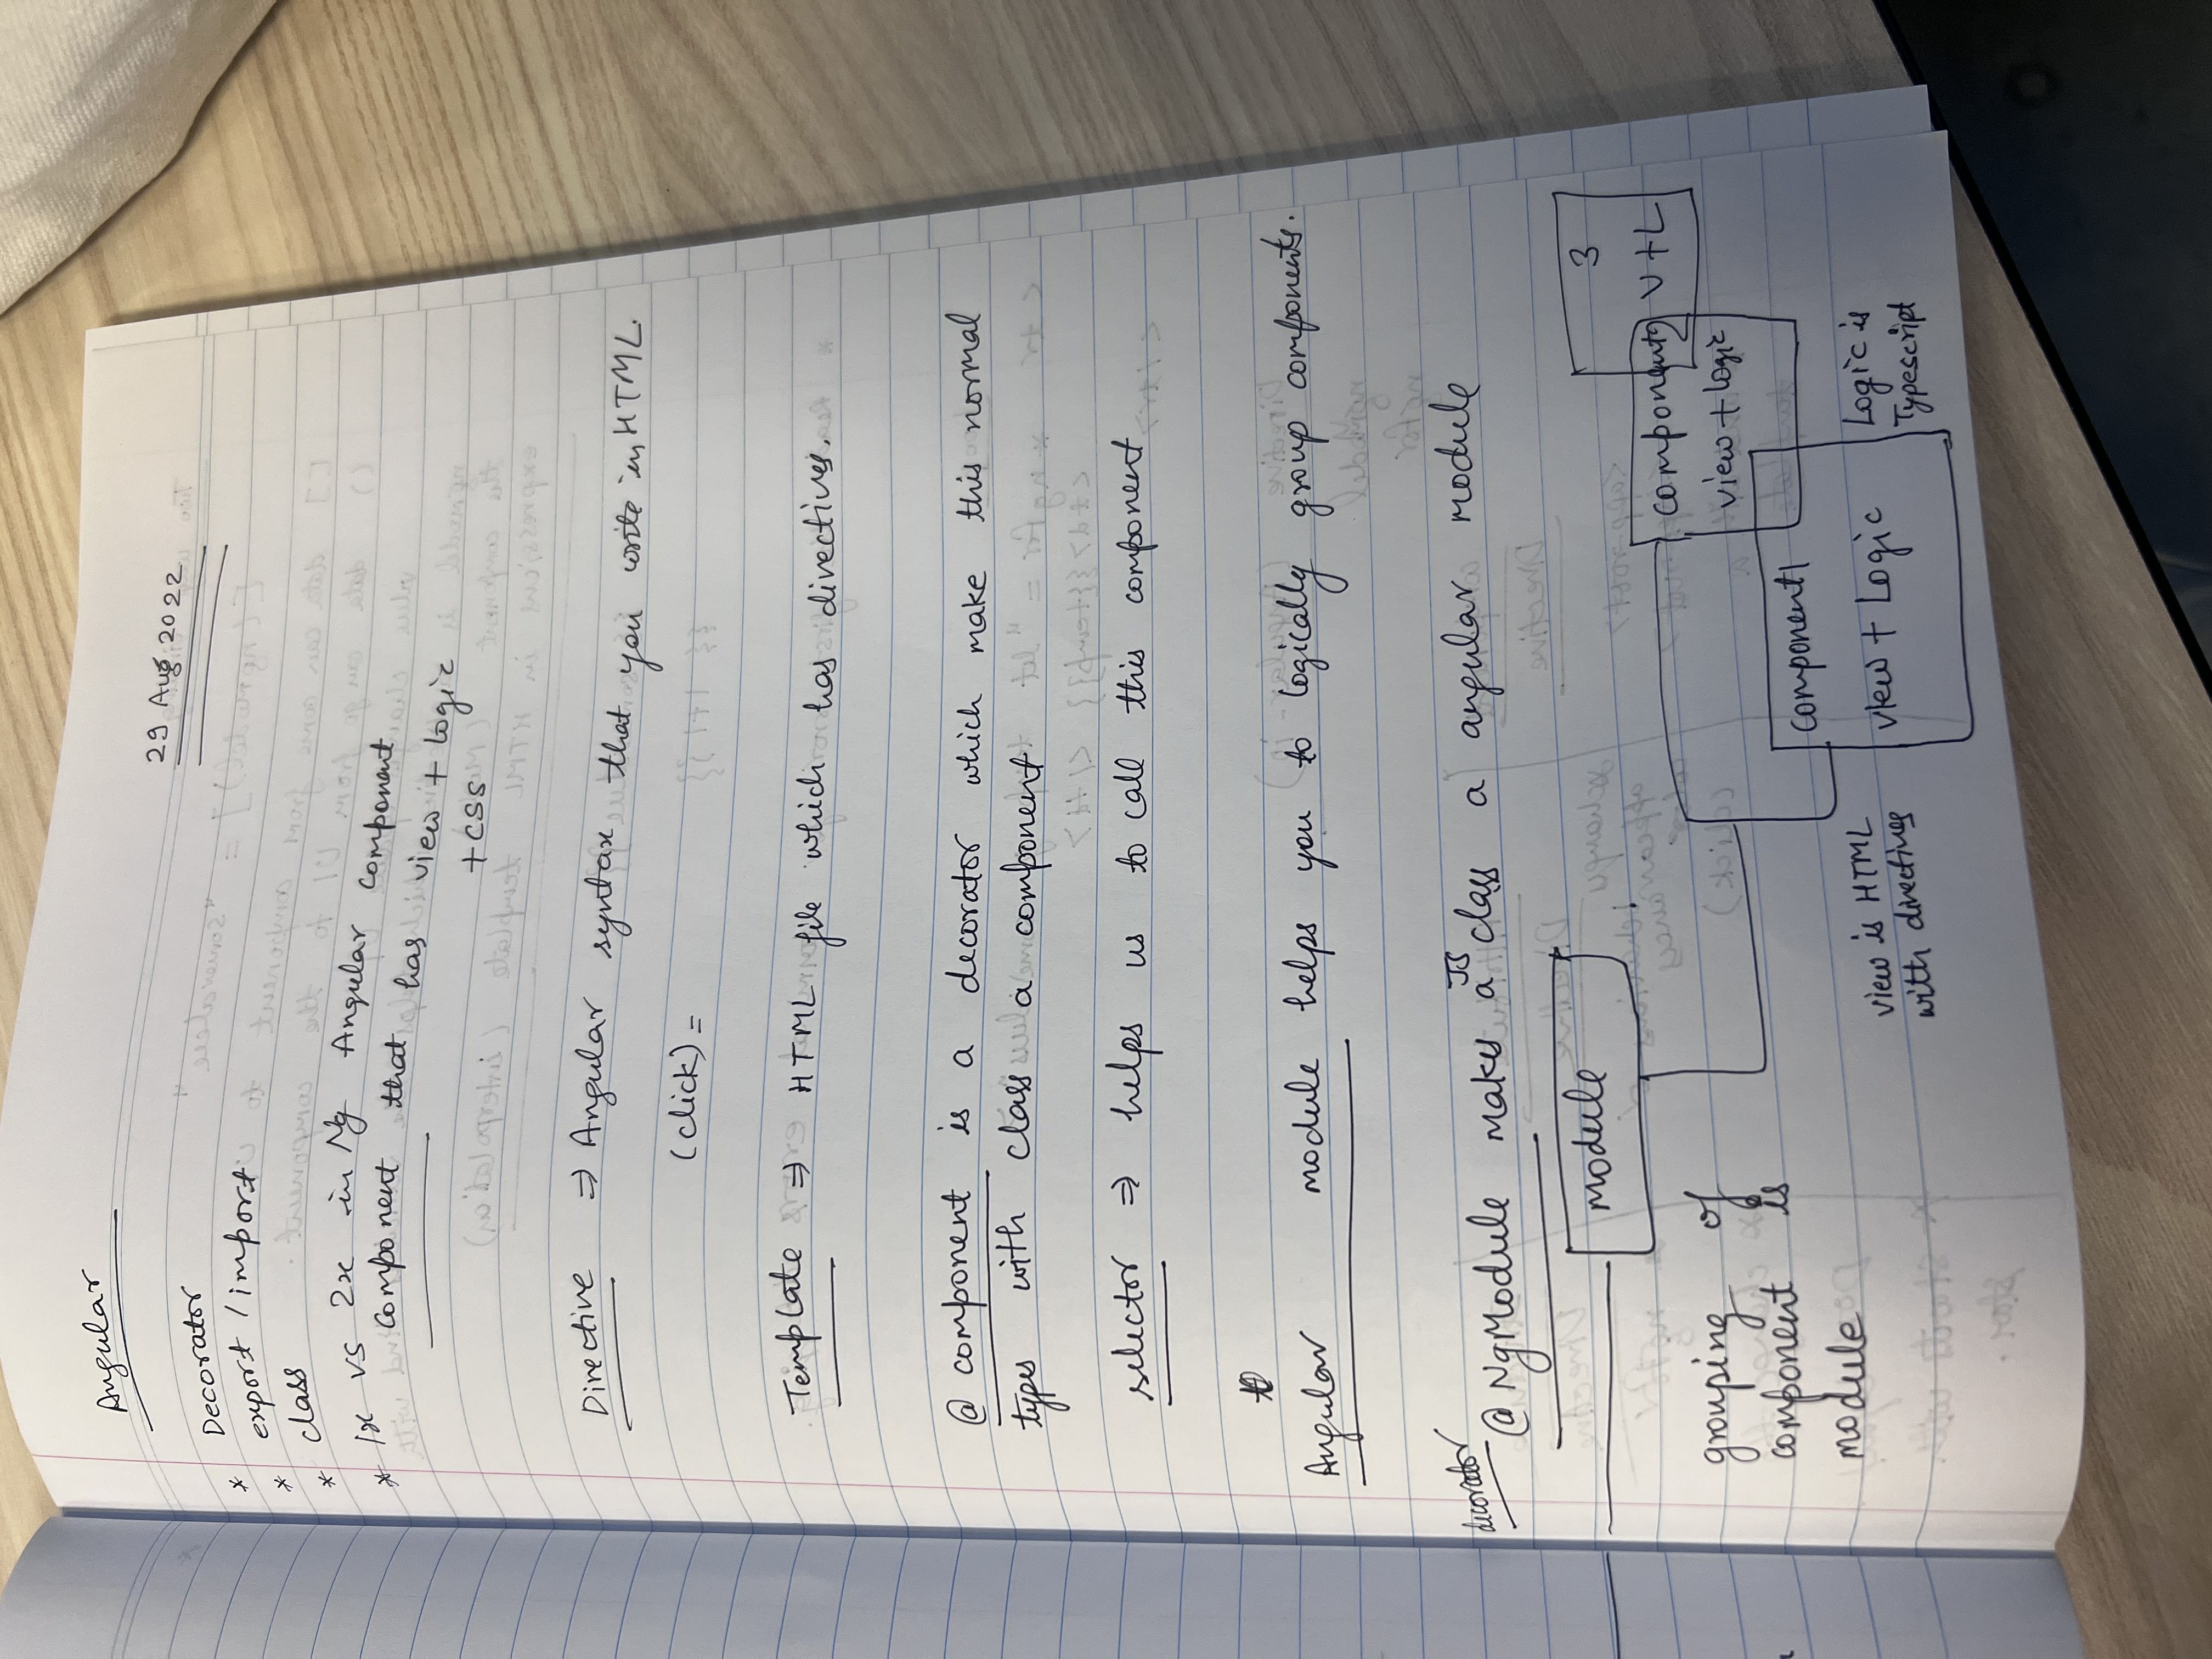 Angular
29 Aug 2022
* Decorator
* export / import
* class
* 1x vs 2x in Ng Angular component
component that has view + logic
+ css
Directive ⇒ Angular syntax that you write in HTML.
(click) =
Template ⇒ HTML file which has directives.
@ component is a decorator which make this normal
types with class a component
selector ⇒ helps us to call this component
Angular module helps you to logically group components.
decorator
@ NgModule makes a JS class a angular module
module
3
V + L
component2
view + logic
grouping of
component is
module
component1
view + Logic
view is HTML
with directives
Logic is
Typescript